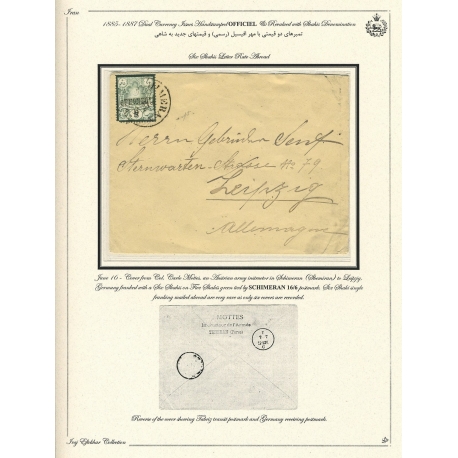 Iran
1885-1887 Dual Currency Issues Handstamped OFFICIEL & Revalued with Shahis Denomination
تمبرهای دو قیمتی با مهر افیسیل (رسمی) و قیمتهای جدید به شاهی
Six Shahis Letter Rate Abroad
Herrn Gebrüder Senf
Sternwarten-Strasse No 79
Leipzig
Allemagne
June 16 - Cover from Col. Carlo Mottes, an Austrian army instructor in Schimeran (Shemiran) to Leipzig,
Germany franked with a Six Shahis on Five Shahis green tied by SCHIMERAN 16/6 postmark. Six Shahi single
franking mailed abroad are very rare as only six covers are recorded.
MOTTES
de l'Armée
TEHERAN (Perse)
Reverse of the cover showing Tabriz transit postmark and Germany receiving postmark.
Iraj Eftekhar Collection